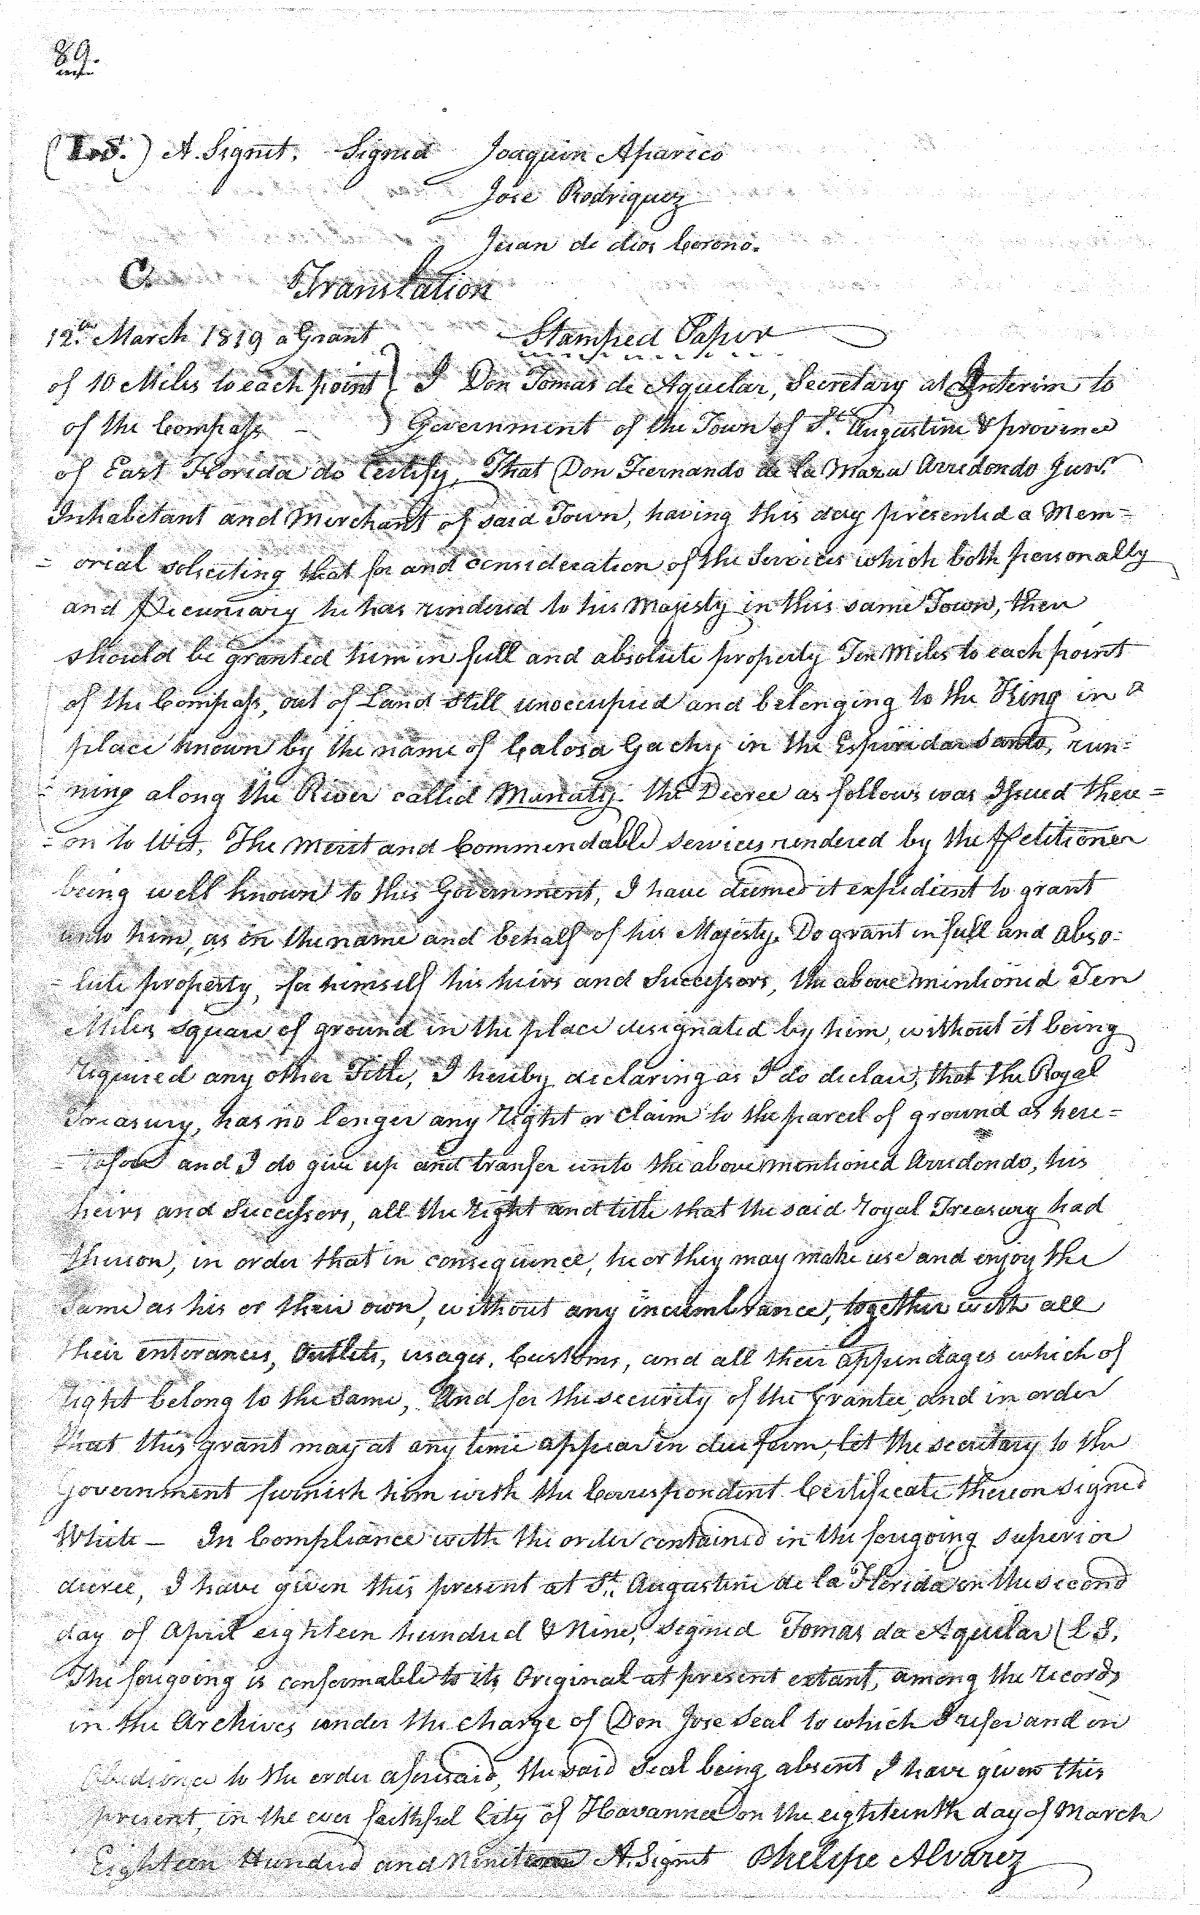 89.
(L.S.) A. Signet. Signed Joaquin Aparico
Jose Rodriguez
Juan de dios Corono.
C. Translation
12th March 1819 a Grant Stamped Paper
of 10 Miles to each point } I Don Tomas de Aguilar, Secretary at Interim to
of the Compass - } Government of the Town of St. Augustine & province
of East Florida do Certify, That Don Fernando de la Maza Arredondo Junr.
Inhabitant and Merchant of said Town, having this day presented a Mem=
= orial soliciting that for and consideration of the Services which both personally
and Pecuniary he has rendered to his Majesty in this same Town, then
should be granted him in full and absolute property Ten Miles to each point
of the Compass, out of Land still unoccupied and belonging to the King in a
place known by the name of Calosa Gachy in the santo, run=
= ning along the River called Manaty. the Decree as follows was Issued there=
= on to Wit, The merit and Commendable services rendered by the Petitioner
being well known to this Government, I have deemed it expedient to grant
unto him, as in the name and behalf of his Majesty. Do grant in full and abso=
= lute property, for himself his heirs and Successors, the above mentioned Ten
Miles square of ground in the place designated by him, without it being
required any other Title, I hereby declaring as I do declare, that the Royal
Treasury, has no longer any right or claim to the parcel of ground as here=
= tofore and I do give up and transfer unto the above mentioned Arredondo, his
heirs and Successors, all the right and title that the said royal Treasury had
thereon, in order that in consequence, he or they may make use and enjoy the
same as his or their own, without any incumbrance, together with all
their enterances, Outlets, usages, Customs, and all their appendages which of
right belong to the same, And for the security of the Grantee, and in order
that this grant may at any time appear in due form, let the secretary to the
Government furnish him with the Correspondent Certificate thereon signed
White - In Compliance with the order contained in the foregoing superior
decree, I have given this present at St. Augustine de la Florida on the second
day of April eighteen hundred & Nine, signed Tomas de Aguilar (L S,
The foregoing is conformable to its Original at present extant, among the records
in the Archives under the charge of Don Jose Seal to which I refer and in
obedience to the order aforesaid, the said Seal being absent I have given this
present, in the ever faithful City of Havanna on the eighteenth day of March
Eighteen Hundred and Nineteen A. Signet Phelipe Alvarez